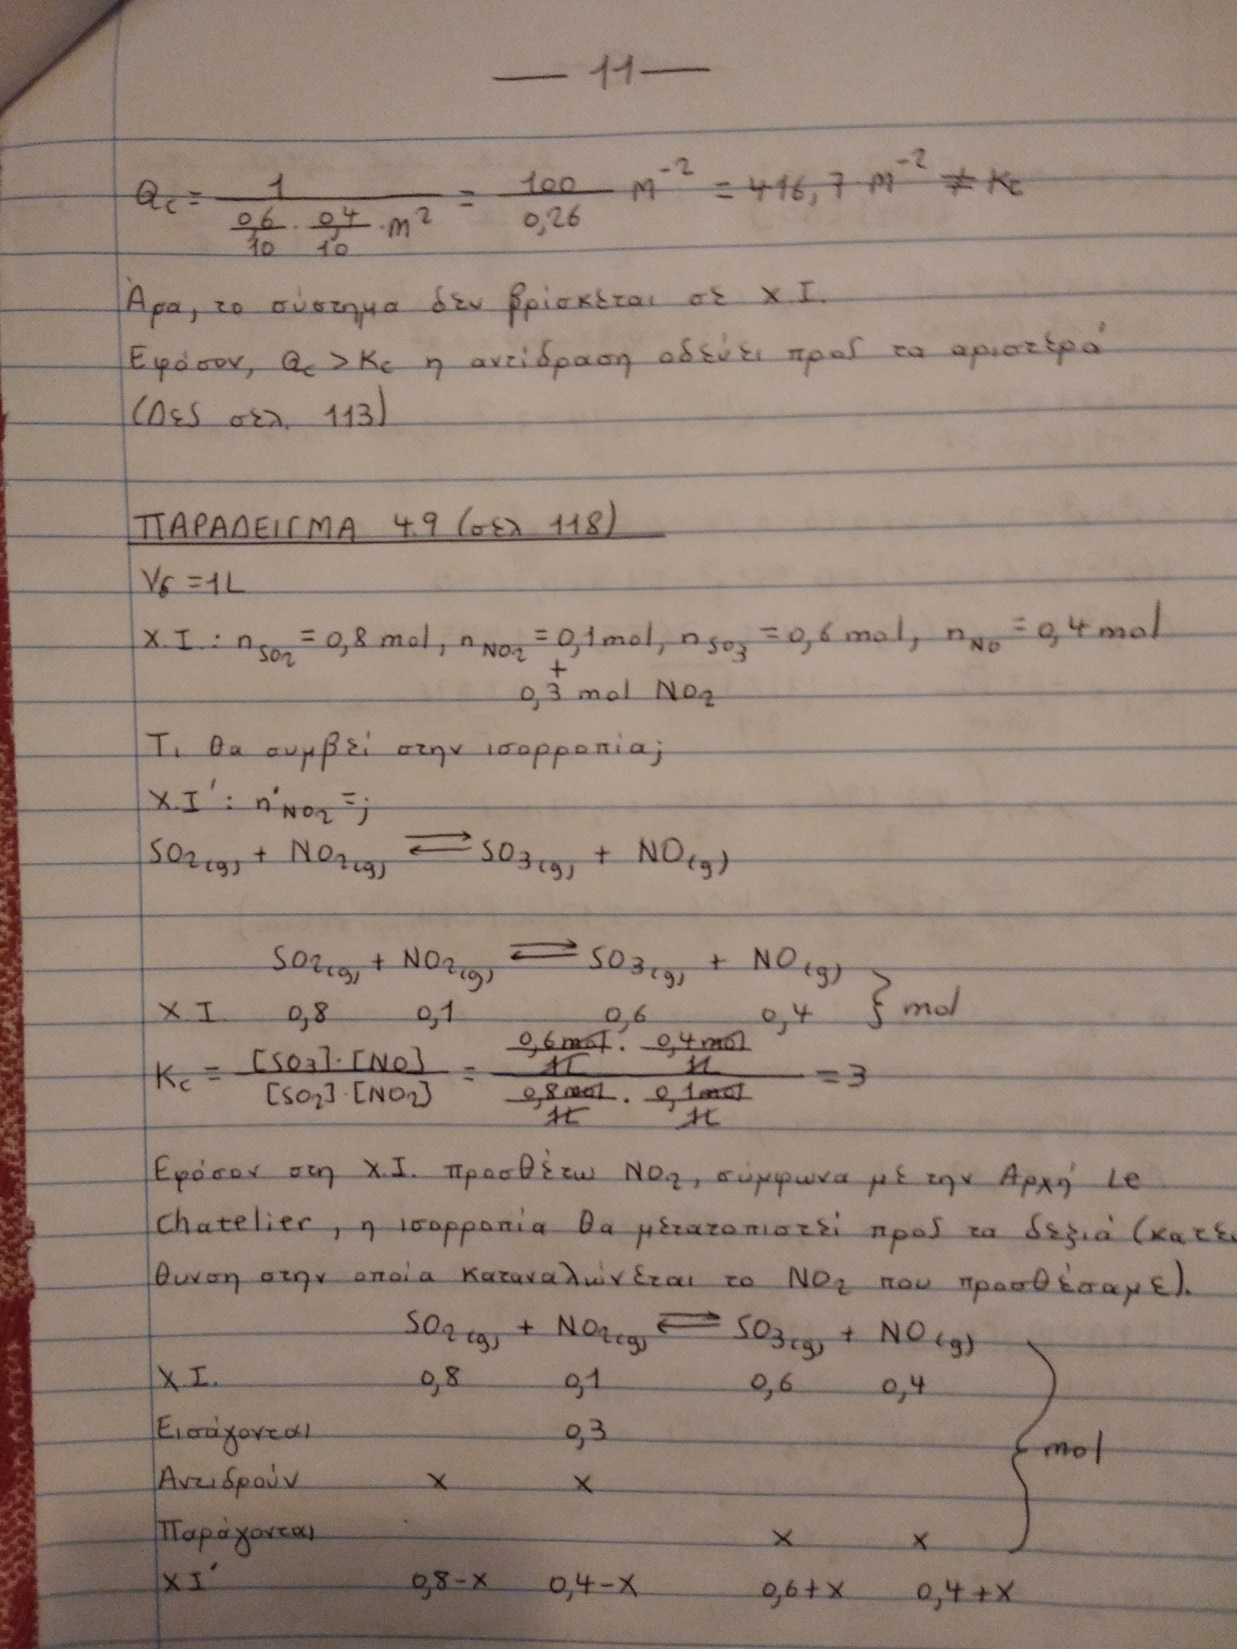 — 11 —
Qc = 1 / (0,6/10 · 0,4/10 · M²) = 100/0,26 M⁻² = 416,7 M⁻² ≠ Kc
Άρα, το σύστημα δεν βρίσκεται σε Χ.Ι.
Εφόσον, Qc > Kc η αντίδραση οδεύει προς τα αριστερά
(Δες σελ. 113)
ΠΑΡΑΔΕΙΓΜΑ 4.9 (σελ 118)
Vδ = 1L
Χ.Ι.: nSO2 = 0,8 mol, nNO2 = 0,1 mol, nSO3 = 0,6 mol, nNO = 0,4 mol
+
0,3 mol NO2
Τι θα συμβεί στην ισορροπία;
Χ.Ι': n'NO2 = ;
SO2(g) + NO2(g) ⇌ SO3(g) + NO(g)
SO2(g) + NO2(g) ⇌ SO3(g) + NO(g)
Χ.Ι 0,8 0,1 0,6 0,4 } mol
Kc = [SO3]·[NO] / [SO2]·[NO2] = (0,6mol/1L · 0,4mol/1L) / (0,8mol/1L · 0,1mol/1L) = 3
Εφόσον στη Χ.Ι. προσθέτω NO2, σύμφωνα με την Αρχή Le
Chatelier, η ισορροπία θα μετατοπιστεί προς τα δεξιά (κατεύ
θυνση στην οποία καταναλώνεται το NO2 που προσθέσαμε).
SO2(g) + NO2(g) ⇌ SO3(g) + NO(g)
Χ.Ι. 0,8 0,1 0,6 0,4
Εισάγονται 0,3 } mol
Αντιδρούν x x
Παράγονται x x
ΧΙ' 0,8-x 0,4-x 0,6+x 0,4+x